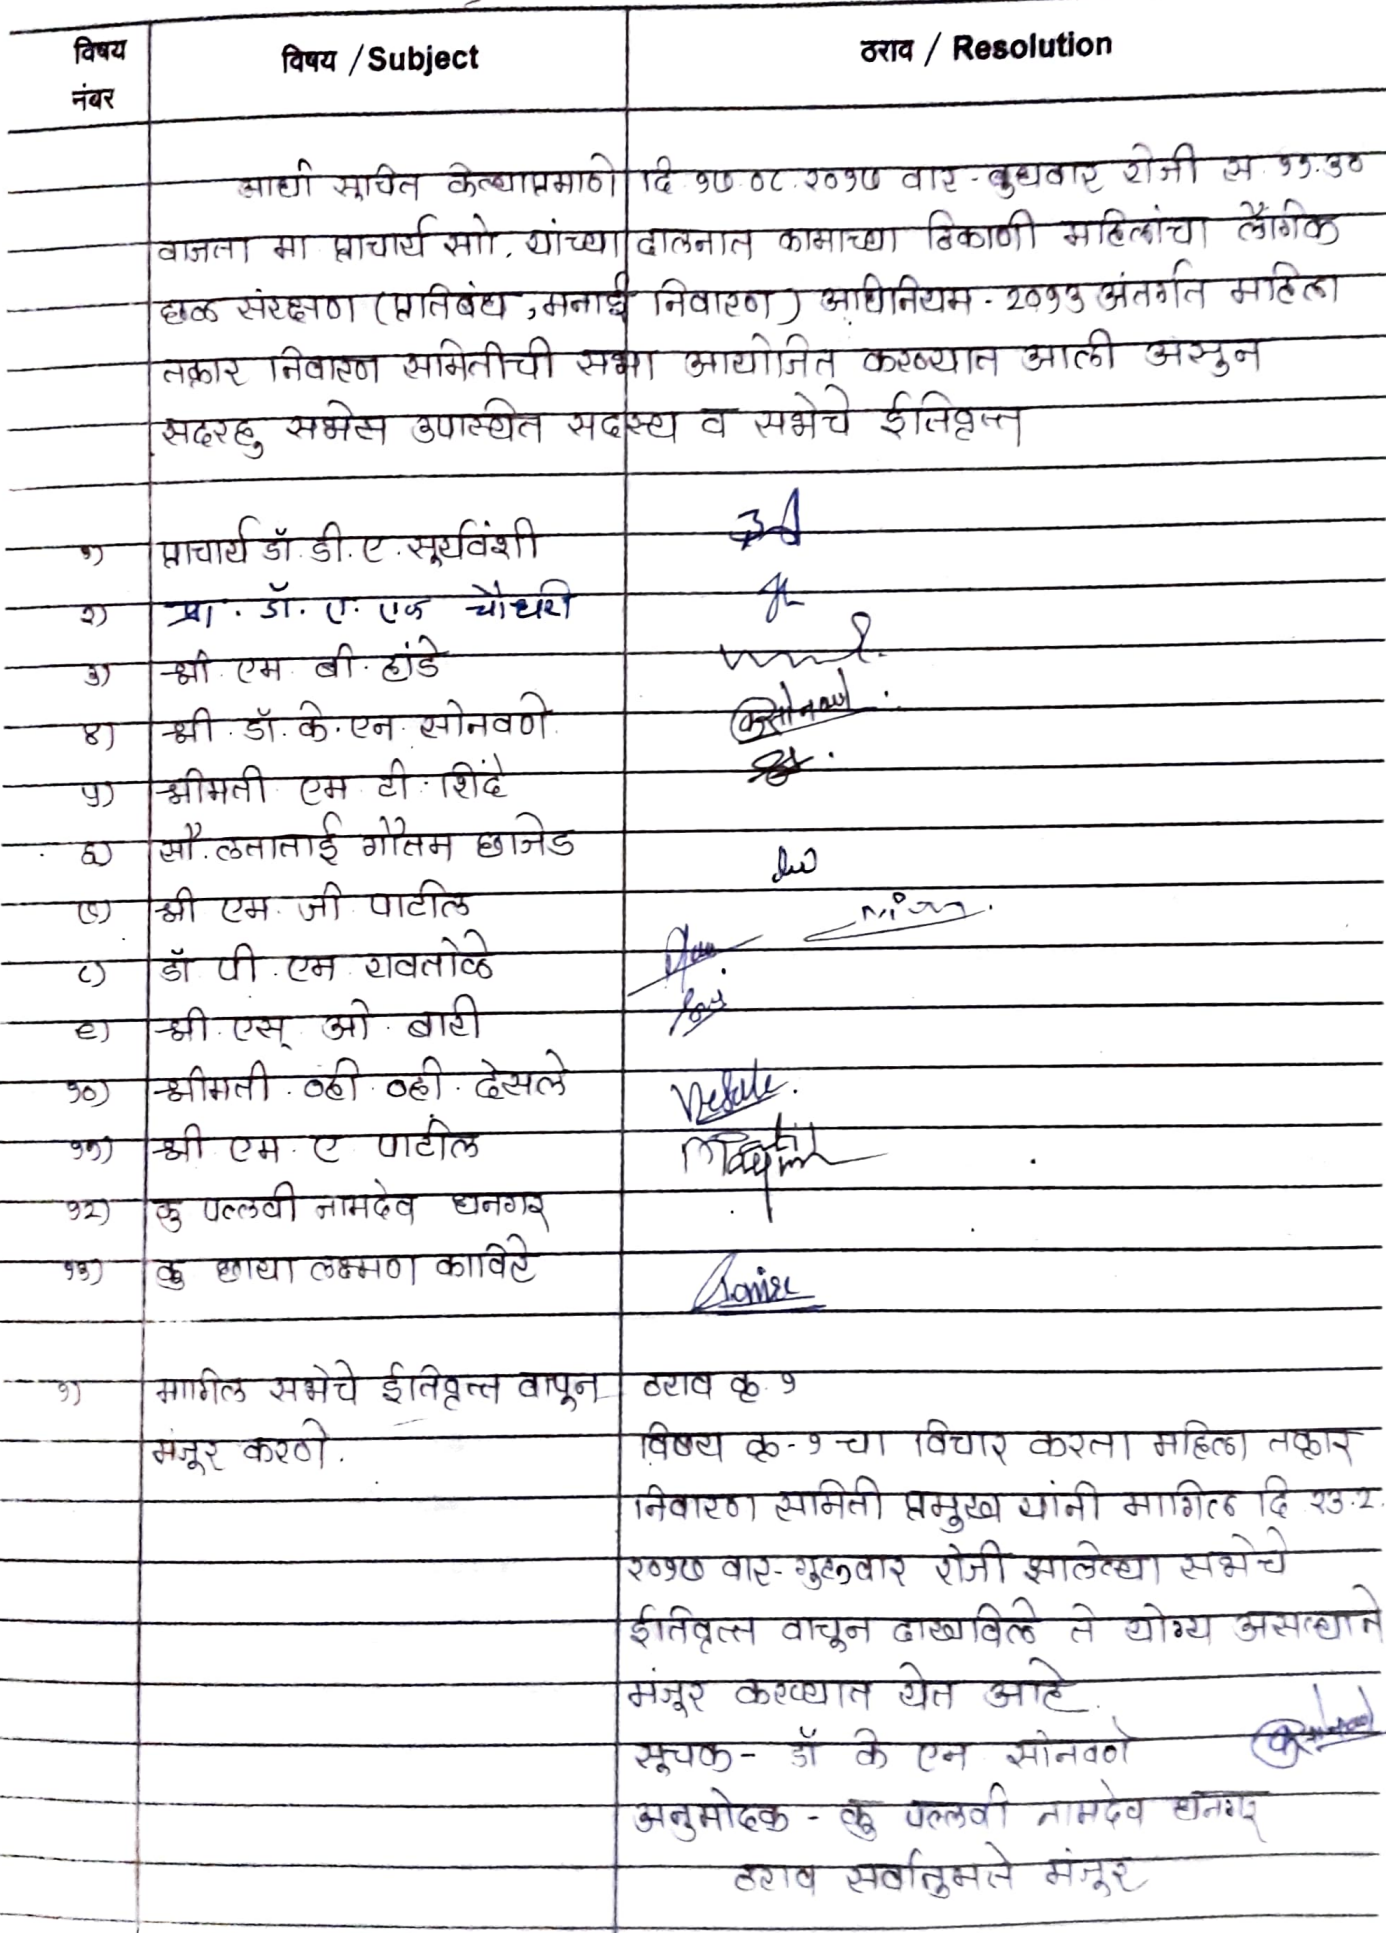 विषय नंबर | विषय /Subject | ठराव / Resolution
आधी सूचित केल्याप्रमाणे दि. १७.०८.२०१७ वार - बुधवार रोजी स. ११.३०
वाजता मा प्राचार्य सो. यांच्या दालनात कामाच्या ठिकाणी महिलांचा लैंगिक
छळ संरक्षण (प्रतिबंध, मनाई निवारण) अधिनियम - २०१३ अंतर्गत महिला
तक्रार निवारण समितीची सभा आयोजित करण्यात आली असुन
सदरहु सभेस उपस्थित सदस्य व सभेचे ईतिवृत्त
१) प्राचार्य डॉ. डी. ए. सूर्यवंशी
२) प्रा. डॉ. ए. एल चौधरी
३) श्री. एम. बी. हांडे
४) श्री. डॉ. के. एन. सोनवणे. सोनवणे
५) श्रीमती एम. टी. शिंदे
६) सौ. लताताई गौतम छाजेड
७) श्री एम. जी. पाटील
८) डॉ पी. एम. रावतोळे
९) श्री. एस्. ओ. बारी
१०) श्रीमती. व्ही. व्ही. देसले Desale.
११) श्री. एम. ए पाटील
१२) कु पल्लवी नामदेव धनगर
१३) कु छाया लक्ष्मण काविरे
१) मागील सभेचे ईतिवृत्त वाचून ठराव क्र. १
मंजूर करणे. विषय क्र - १ चा विचार करता महिला तक्रार
निवारण समिती प्रमुख यांनी मागिल दि २३.२.
२०१७ वार - गुरूवार रोजी झालेल्या सभेचे
ईतिवृत्त वाचून दाखविले ते योग्य असल्याने
मंजूर करण्यात येत आहे.
सूचक - डॉ के एन सोनवणे
अनुमोदक - कु पल्लवी नामदेव धनगर
ठराव सर्वानुमते मंजूर